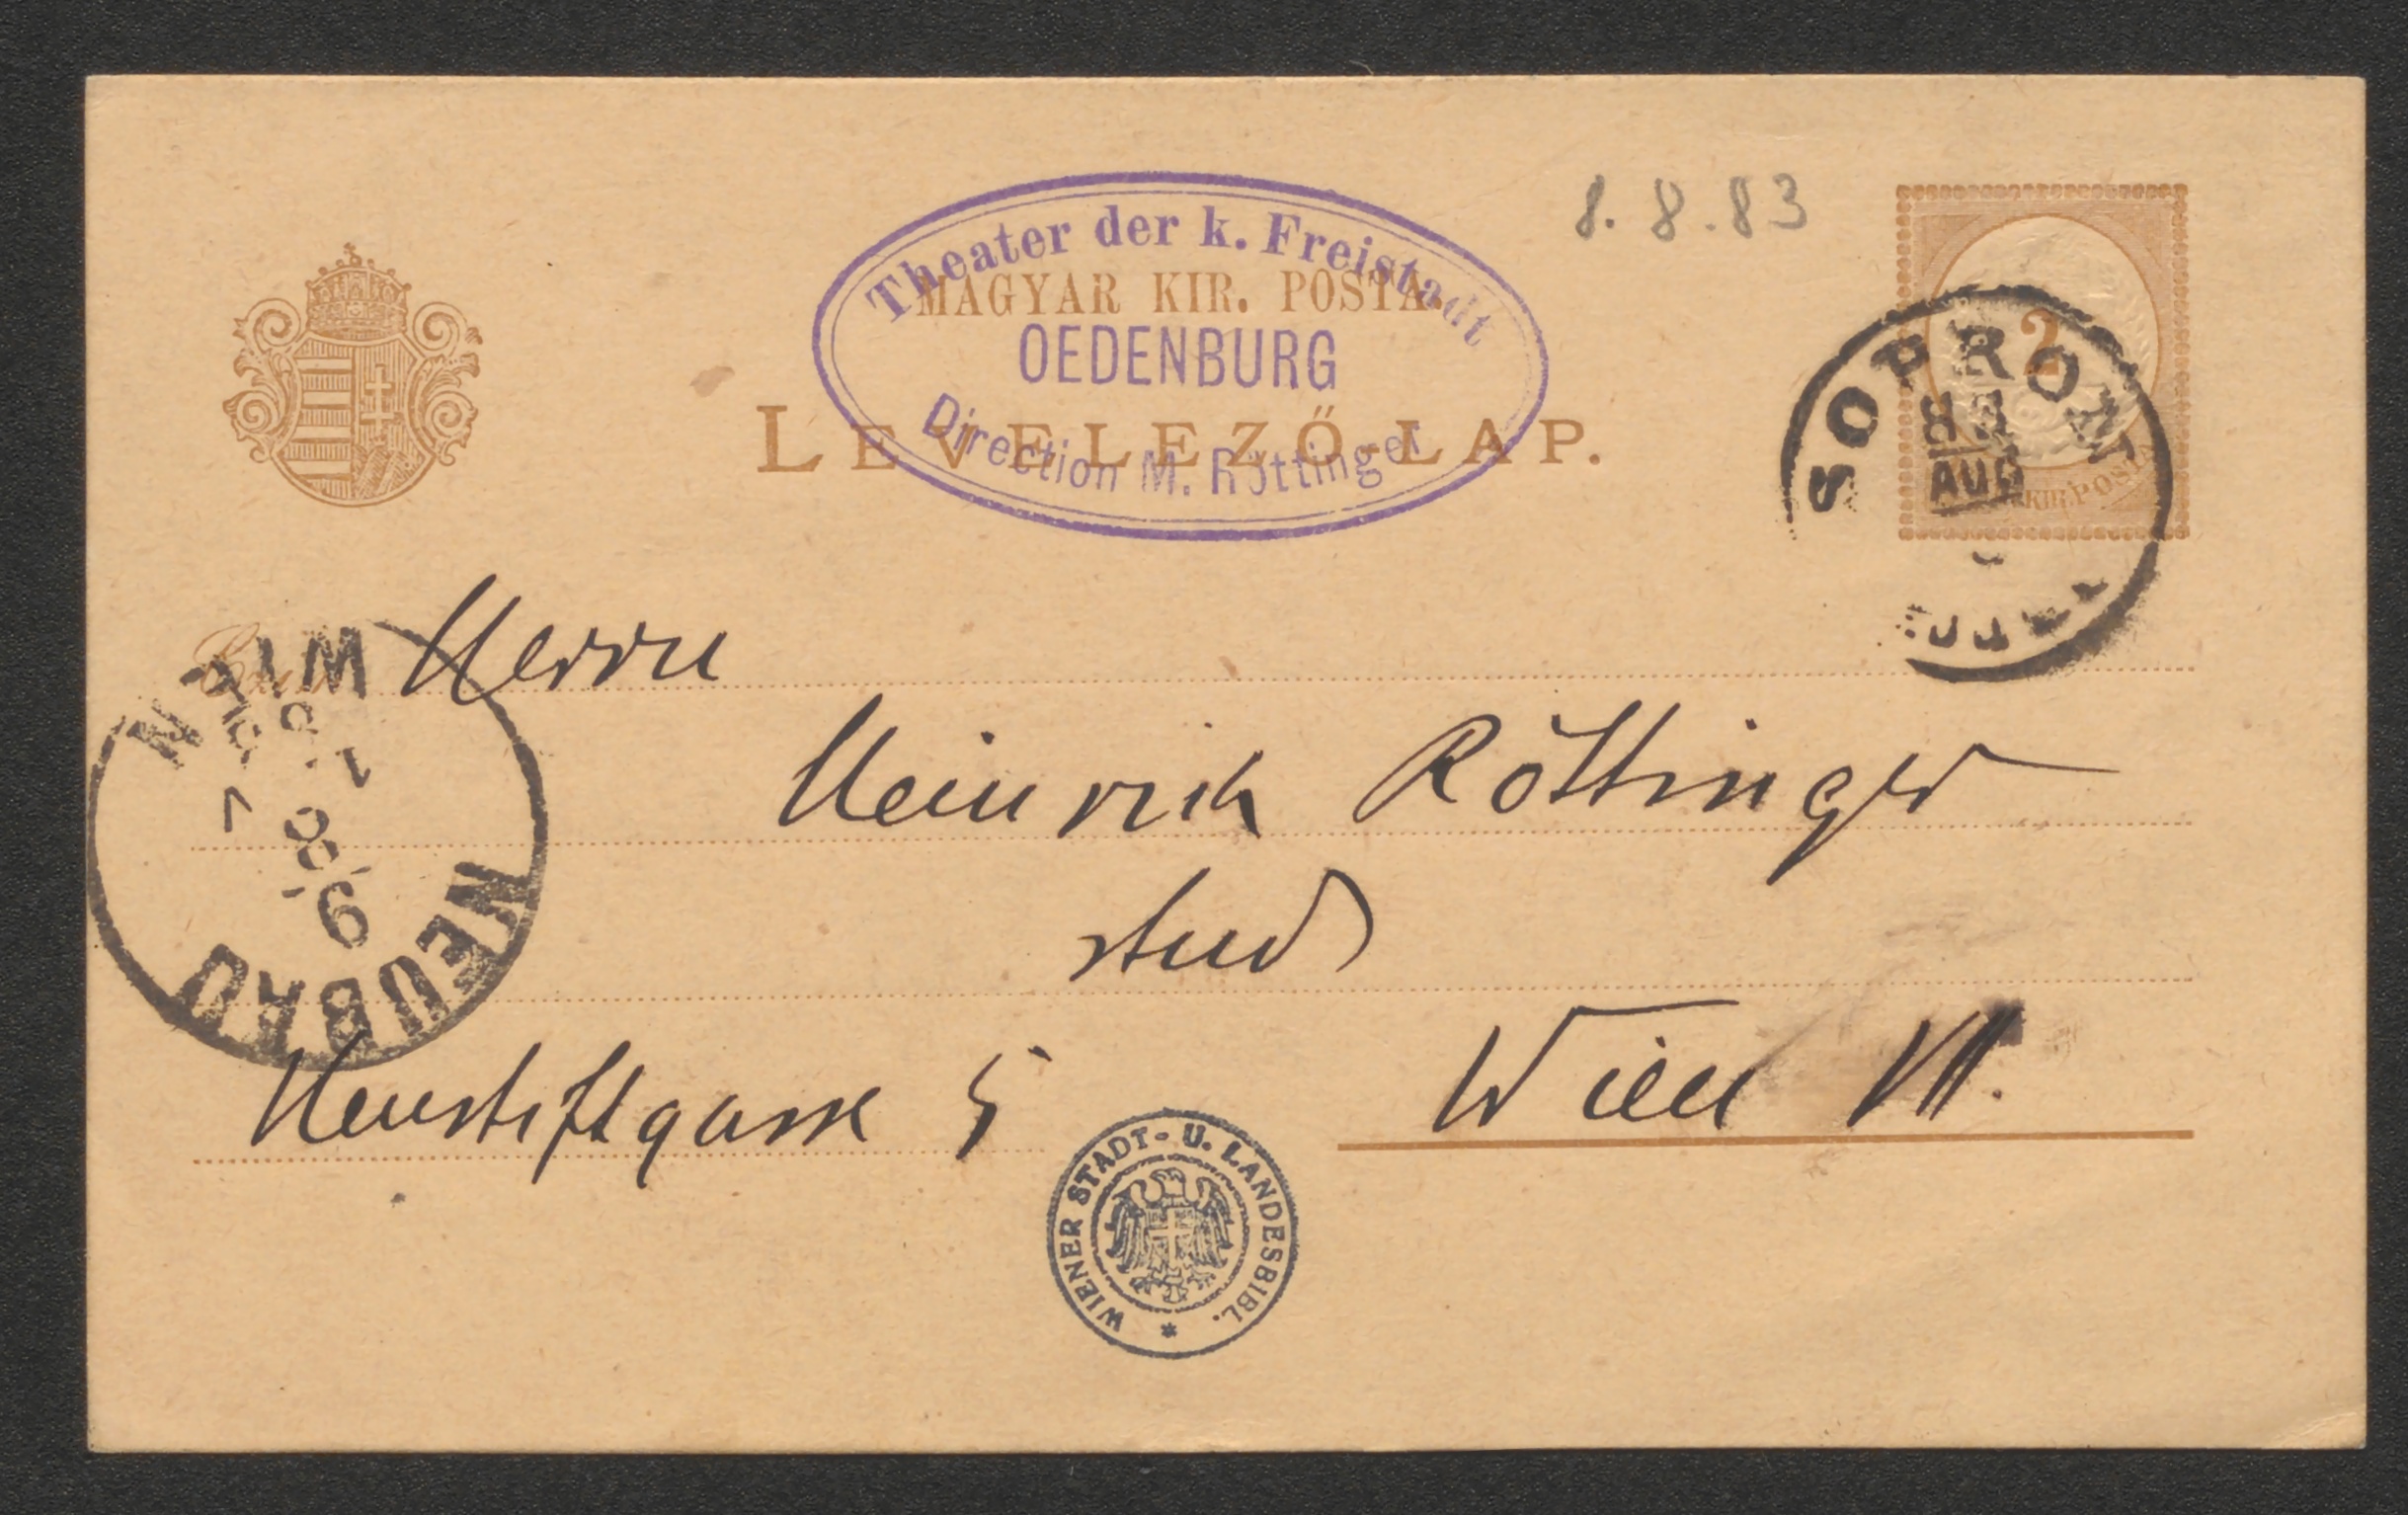 8.8.83
Theater der k. Freistadt
MAGYAR KIR. POSTA.
OEDENBURG
LEVELEZŐ-LAP.
Direction M. Röttinger
2
KIR. POSTA
SOPRON
83
AUG
WIEN
9. 8.
NEUBAU
Herrn
Heinrich Röttinger
stud
Neustiftgasse 5
Wien VII.
WIENER STADT- U. LANDESBIBL.